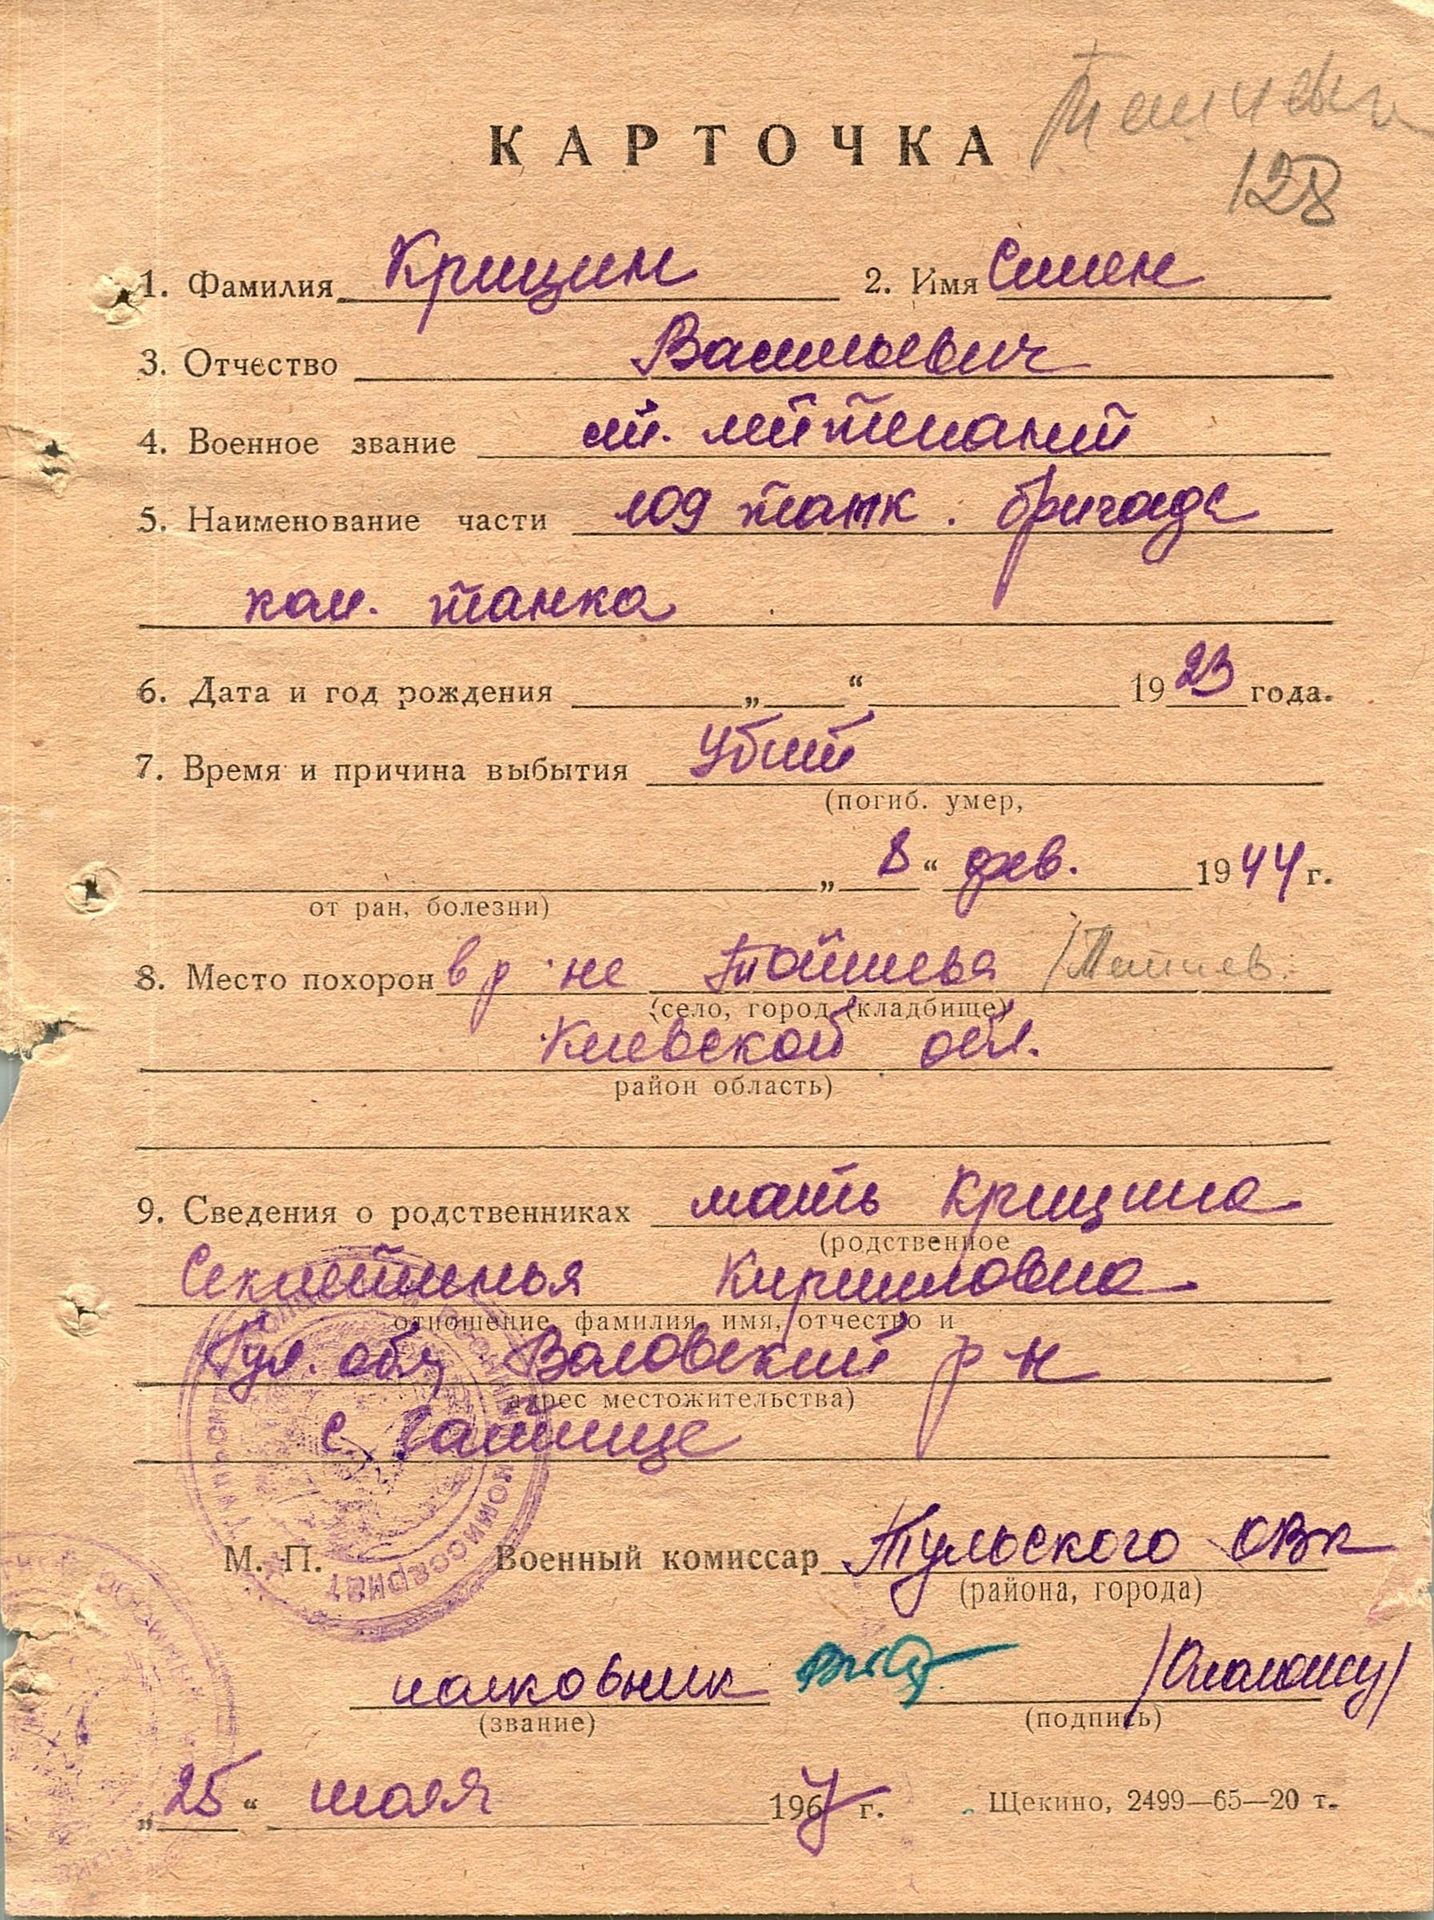 128
КАРТОЧКА
1. Фамилия Крицин 2. Имя Симен
3. Отчество Васильевич
4. Военное звание мл. лейтенант
5. Наименование части 109 танк. бригада
ком. танка
6. Дата и год рождения „ “ 1923 года.
7. Время и причина выбытия Убит
(погиб. умер,
„ 8 “ фев. 1944 г.
от ран, болезни)
8. Место похорон в р-не
(село, город (кладбище)
Киевской обл.
район область)
9. Сведения о родственниках мать Крицина
(родственное
Кирилловна
отношение, фамилия, имя, отчество и
Тул. обл Воловский р-н
адрес местожительства)
с.
М. П. Военный комиссар Тульского ОВК
(района, города)
полковник
(звание) (подпись)
„25“ июля 1967 г. Щекино, 2499—65—20 т.